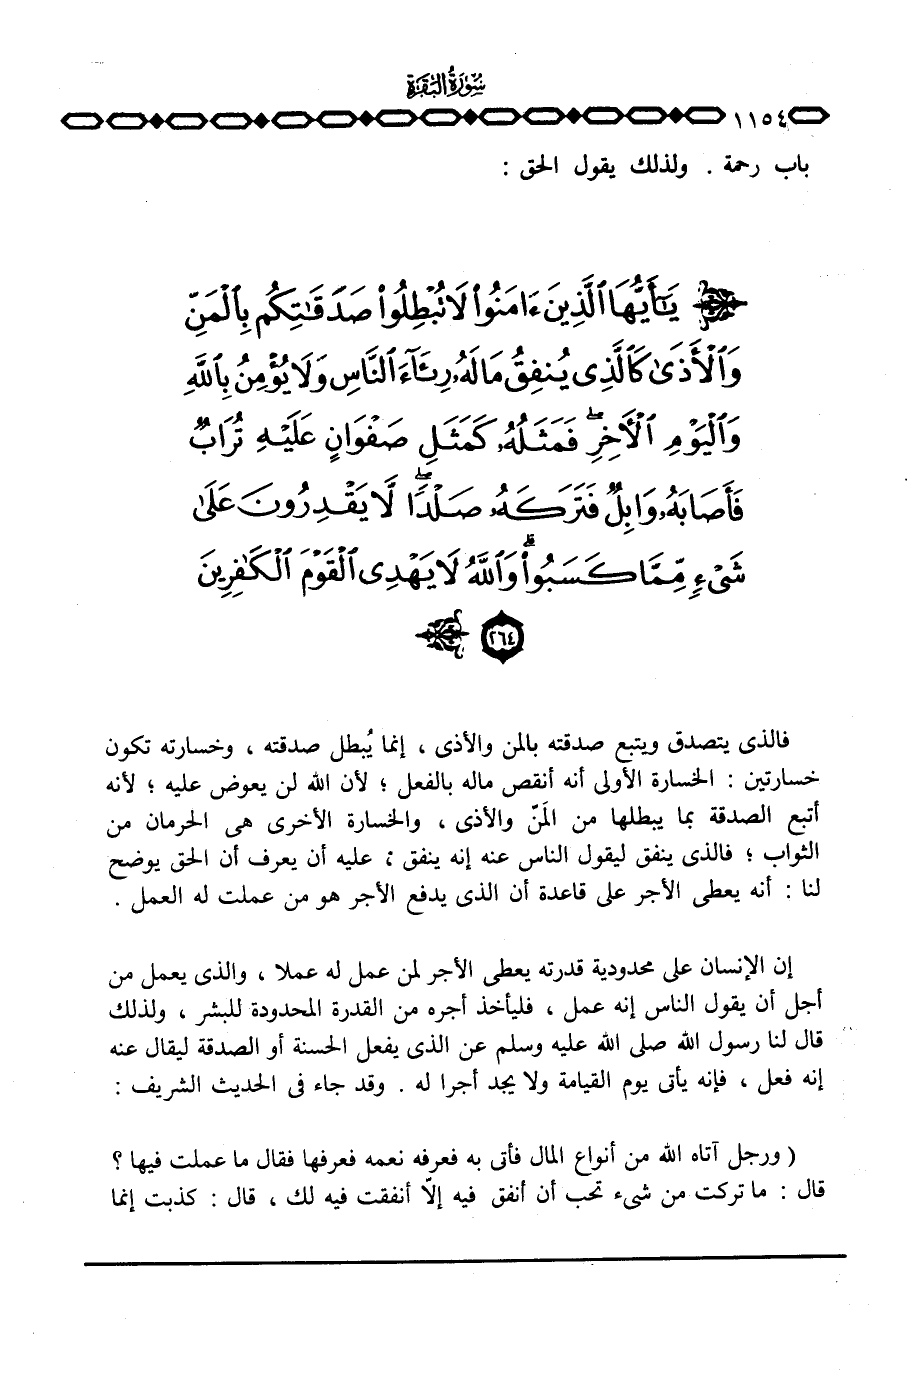 سُورَةُ البَقَرَةِ
١١٥٤
باب رحمة . ولذلك يقول الحق :
يَٰٓأَيُّهَا ٱلَّذِينَ ءَامَنُوا۟ لَا تُبْطِلُوا۟ صَدَقَٰتِكُم بِٱلْمَنِّ
وَٱلْأَذَىٰ كَٱلَّذِى يُنفِقُ مَالَهُۥ رِئَآءَ ٱلنَّاسِ وَلَا يُؤْمِنُ بِٱللَّهِ
وَٱلْيَوْمِ ٱلْأَخِرِۖ فَمَثَلُهُۥ كَمَثَلِ صَفْوَانٍ عَلَيْهِ تُرَابٌ
فَأَصَابَهُۥ وَابِلٌ فَتَرَكَهُۥ صَلْدًاۖ لَّا يَقْدِرُونَ عَلَىٰ
شَىْءٍ مِّمَّا كَسَبُوا۟ۗ وَٱللَّهُ لَا يَهْدِى ٱلْقَوْمَ ٱلْكَٰفِرِينَ
٢٦٤
فالذى يتصدق ويتبع صدقته بالمن والأذى ، إنما يُبطل صدقته ، وخسارته تكون
خسارتين : الخسارة الأولى أنه أنقص ماله بالفعل ؛ لأن الله لن يعوض عليه ؛ لأنه
أتبع الصدقة بما يبطلها من المَنّ والأذى ، والخسارة الأخرى هى الحرمان من
الثواب ؛ فالذى ينفق ليقول الناس عنه إنه ينفق ؛ عليه أن يعرف أن الحق يوضح
لنا : أنه يعطى الأجر على قاعدة أن الذى يدفع الأجر هو من عملت له العمل .
إن الإنسان على محدودية قدرته يعطى الأجر لمن عمل له عملا ، والذى يعمل من
أجل أن يقول الناس إنه عمل ، فليأخذ أجره من القدرة المحدودة للبشر ، ولذلك
قال لنا رسول الله صلى الله عليه وسلم عن الذى يفعل الحسنة أو الصدقة ليقال عنه
إنه فعل ، فإنه يأتى يوم القيامة ولا يجد أجرا له . وقد جاء فى الحديث الشريف :
( ورجل آتاه الله من أنواع المال فأتى به فعرفه نعمه فعرفها فقال ما عملت فيها ؟
قال : ما تركت من شىء تحب أن أنفق فيه إلاّ أنفقت فيه لك ، قال : كذبت إنما